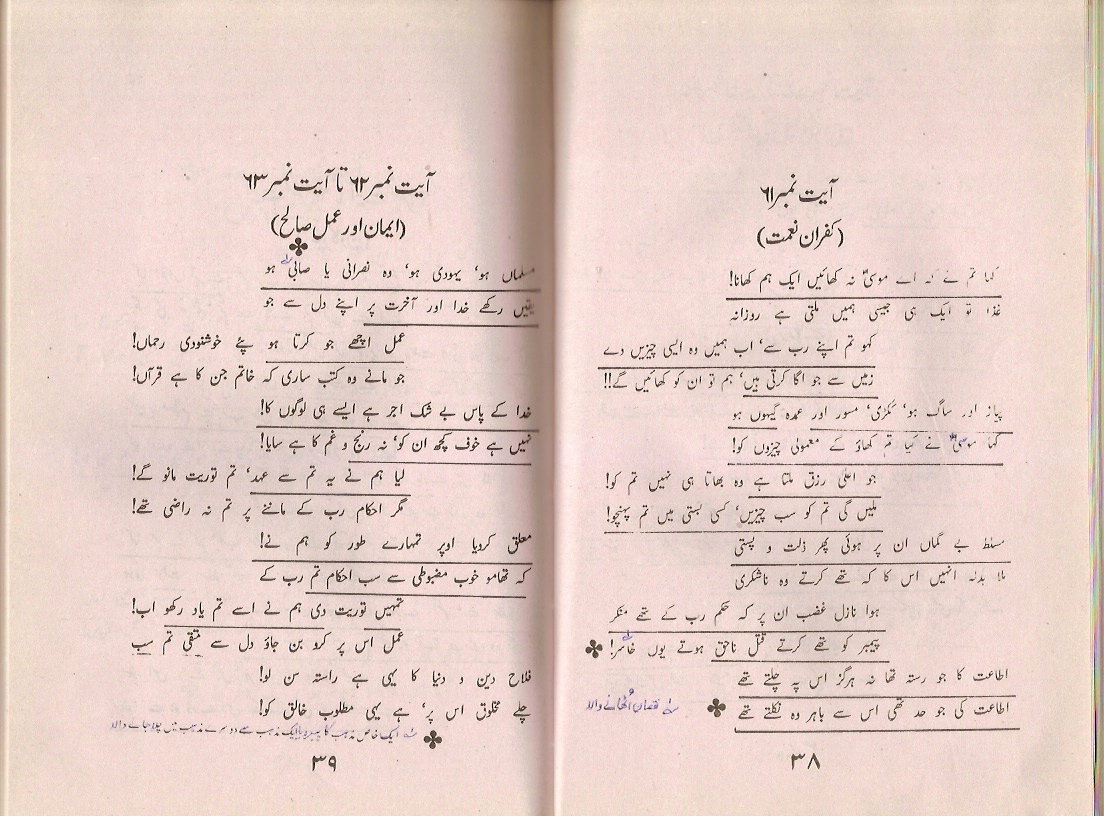 آیت نمبر ۶۱
(کفران نعمت)
کہا تم نے کہ اے موسیٰؑ نہ کھائیں ایک ہم کھانا!
غذا تو ایک ہی جیسی ہمیں ملتی ہے روزانہ
کہو تم اپنے رب سے، اب ہمیں وہ ایسی چیزیں دے
زمیں سے جو اگا کرتی ہیں، ہم تو ان کو کھائیں گے!!
پیاز اور ساگ ہو، ککڑی، مسور اور عمدہ گیہوں ہو
کہا موسیٰؑ نے کیا تم کھاؤ گے معمولی چیزوں کو!
جو اعلیٰ رزق ملتا ہے وہ بھاتا ہی نہیں تم کو!
ملیں گی تم کو سب چیزیں، کسی بستی میں تم پہنچو!
مسلط بے گماں ان پر ہوئی پھر ذلت و پستی
ملا بدلہ انہیں اس کا کہ تھے کرتے وہ ناشکری
ہوا نازل غضب ان پر کہ حکم رب کے تھے منکر
پیمبر کو تھے کرتے قتل ناحق ہوتے یوں خاسر!
اطاعت کا جو رستہ تھا نہ ہرگز اس پہ چلتے تھے
اطاعت کی جو حد تھی اس سے باہر وہ نکلتے تھے
نقصان اُٹھانے والا
۳۸
آیت نمبر ۶۲ تا آیت نمبر ۶۳
(ایمان اور عمل صالح)
مسلماں ہو، یہودی ہو، وہ نصرانی یا صابی ہو
یقیں رکھے خدا اور آخرت پر اپنے دل سے جو
عمل اچھے جو کرتا ہو پئے خوشنودی رحماں!
جو مانے وہ کتب ساری کہ خاتم جن کا ہے قرآں!
خدا کے پاس بے شک اجر ہے ایسے ہی لوگوں کا!
نہیں ہے خوف کچھ ان کو، نہ رنج و غم کا ہے سایا!
لیا ہم نے یہ تم سے عہد، تم توریت مانو گے!
مگر احکام رب کے ماننے پر تم نہ راضی تھے!
معلق کردیا اوپر تمہارے طور کو ہم نے!
کہ تھامو خوب مضبوطی سے سب احکام تم رب کے
تمہیں توریت دی ہم نے اسے تم یاد رکھو اب!
عمل اس پر کرو بن جاؤ دل سے متقی تم سب
فلاح دین و دنیا کا یہی ہے راستہ سن لو!
چلے مخلوق اس پر، ہے یہی مطلوب خالق کو!
ایک خاص مذہب کا پیرو یا ایک مذہب سے دوسرے مذہب میں چلا جانے والا
۳۹